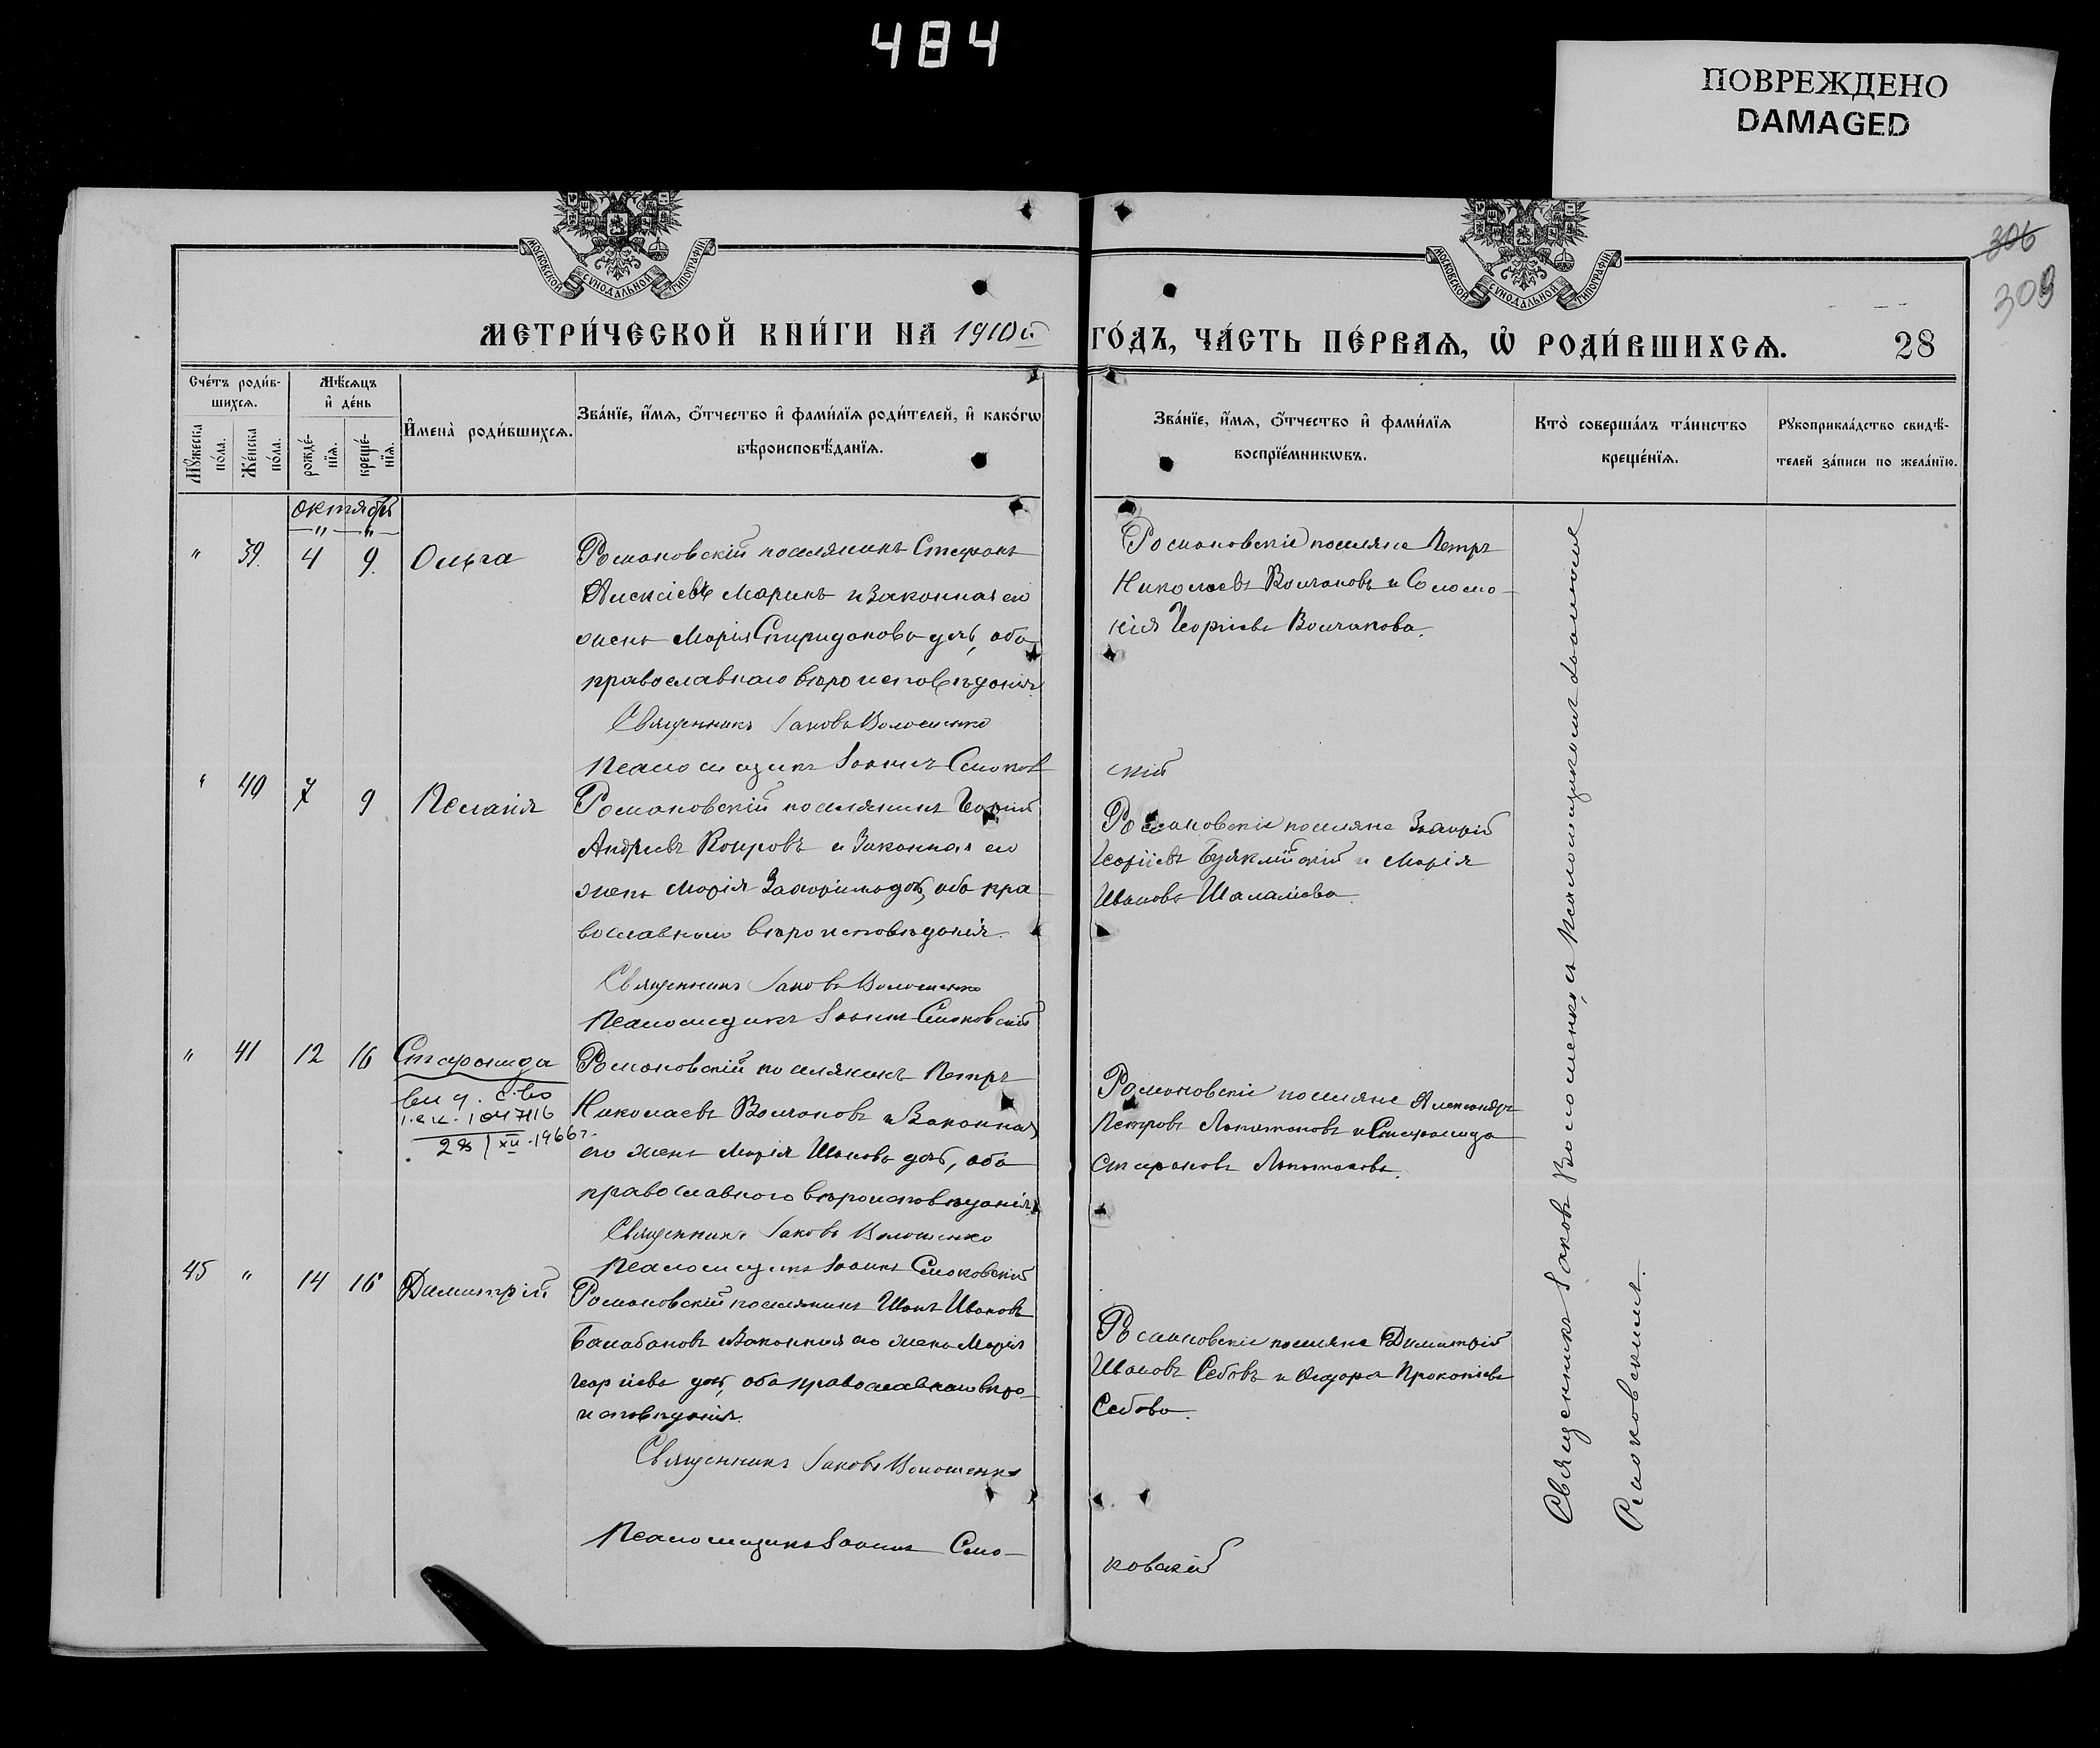 484
ПОВРЕЖДЕНО
DAMAGED
306
309
МОСКОВСКОЙ СѴНОДАЛЬНОЙ ТИПОГРАФІИ
МОСКОВСКОЙ СѴНОДАЛЬНОЙ ТИПОГРАФІИ
МЕТРИ́ЧЕСКОЙ КНИ́ГИ НА 1910й ГО́ДЪ, ЧА́СТЬ ПЕ́РВАѦ, Ѡ҆ РОДИ́ВШИХСѦ. 28
Сче́тъ роди́в-
шихсѧ.
Мꙋ́жеска по́ла.
Же́нска по́ла.
Мѣ́сѧцъ
и҆ де́нь
рожде́-нїѧ.
креще́-нїѧ.
И҆мена̀ роди́вшихсѧ.
Зва́нїе, и҆́мѧ, ѻ҆́тчество и҆ фами́лїѧ роди́телей, и҆ како́гѡ
вѣроисповѣ́данїѧ.
Зва́нїе, и҆́мѧ, ѻ҆́тчество и҆ фами́лїѧ
воспрїе́мникѡвъ.
Кто̀ соверша́лъ та́инство
креще́нїѧ.
Рꙋкоприкла́дство свидѣ́-
телей за́писи по жела́нїю.
октябрь
— " — " —
" 39. 4 9. Ольга
Романовскій поселянинъ Стефанъ
Алексіевъ Маринъ и законная его
жена Марія Спиридонова дочь, оба
православнаго вѣроисповѣданія.
Священникъ Іаковъ Волошенко
Псаломщикъ Іоаннъ Смоков
Романовскіе поселяне Петръ
Николаевъ Волчановъ и Соломо-
нія Георгіева Волчанова.
скій
" 40 7 9 Пелагія
Романовскій поселянинъ Георгій
Андреевъ Коировъ и законная его
жена Марія Захаріева дочь, оба пра-
вославнаго вѣроисповѣданія.
Священникъ Іаковъ Волошенко
Псаломщикъ Іоаннъ Смоковскій
Романовскіе поселяне Захарій
Георгіевъ Буяклійскій и Марія
Иванова Шаламова.
" 41 12 16 Стефанида
выд. с-во
1047116
28/XII-1966 г.
Романовскій поселянинъ Петръ
Николаевъ Волчановъ и законная
его жена Марія Иванова дочь, оба
православнаго вѣроисповѣданія.
Священникъ Іаковъ Волошенко
Псаломщикъ Іоаннъ Смоковскій
Романовскіе поселяне Александръ
Петровъ и Стефанида
Стефанова
45 " 14 16 Димитрій
Романовскій поселянинъ Иванъ Ивановъ
Балабановъ и законная его жена Марія
Георгіева дочь, оба православнаго вѣро-
исповѣданія.
Священникъ Іаковъ Волошенко
Псаломщикъ Іоаннъ Смо-
Романовскіе поселяне Димитрій
Ивановъ Себовъ и Ѳедора Прокопіева
Себова.
ковскій
Священникъ Іаковъ Волошенко, съ псаломщикомъ Іоанномъ
Смоковскимъ.